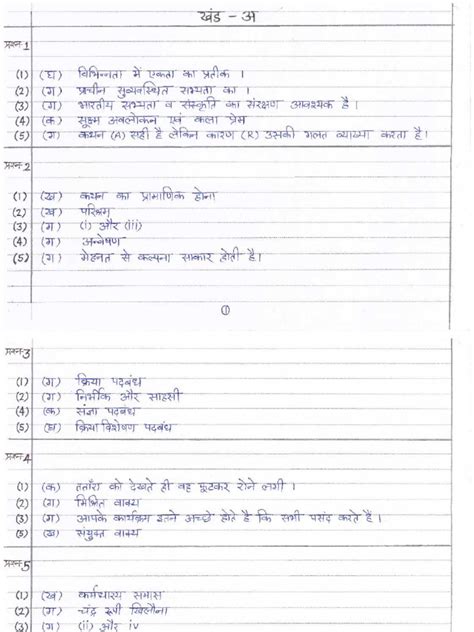 खंड - अ
प्रश्न-1
(1) (घ) विभिन्नता में एकता का प्रतीक ।
(2) (ग) प्राचीन सुव्यवस्थित सभ्यता का ।
(3) (ग) भारतीय सभ्यता व संस्कृति का संरक्षण आवश्यक है ।
(4) (क) सूक्ष्म अवलोकन एवं कला प्रेम
(5) (ग) कथन (A) सही है लेकिन कारण (R) उसकी गलत व्याख्या करता है।
प्रश्न-2
(1) (ख) कथन का प्रामाणिक होना
(2) (ख) परिश्रम
(3) (ग) (i) और (iii)
(4) (ग) अन्वेषण
(5) (ग) मेहनत से कल्पना साकार होती है।
1
प्रश्न-3
(1) (ग) क्रिया पदबंध
(2) (ग) निर्भीक और साहसी
(4) (क) संज्ञा पदबंध
(5) (घ) क्रियाविशेषण पदबंध
प्रश्न-4
(1) (क) तताँरा को देखते ही वह फूटकर रोने लगी ।
(2) (ग) मिश्रित वाक्य
(3) (ग) आपके कार्यक्रम इतने अच्छे होते है कि सभी पसंद करते हैं।
(5) (ख) संयुक्त वाक्य
प्रश्न-5
(1) (ख) कर्मधारय समास
(2) (ग) चंद्र रूपी खिलौना
(3) (ग) (ii) और iv